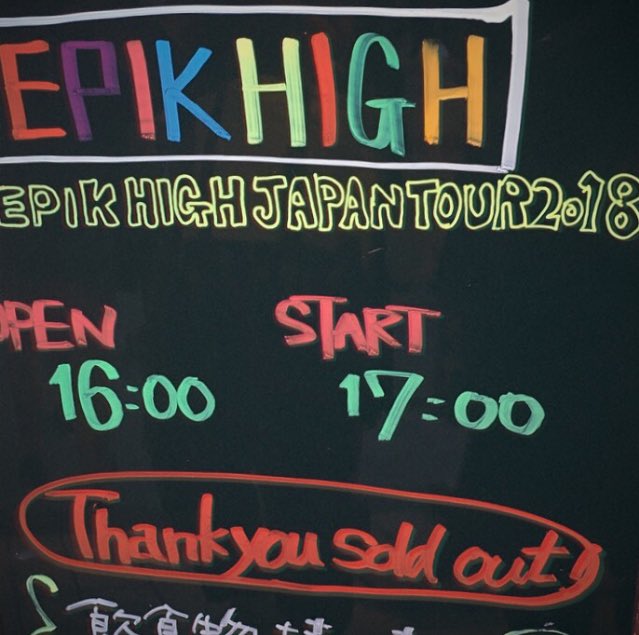 EPIK HIGH
EPIK HIGH JAPAN TOUR 2018
OPEN START
16:00 17:00
Thank you sold out!
飲食物